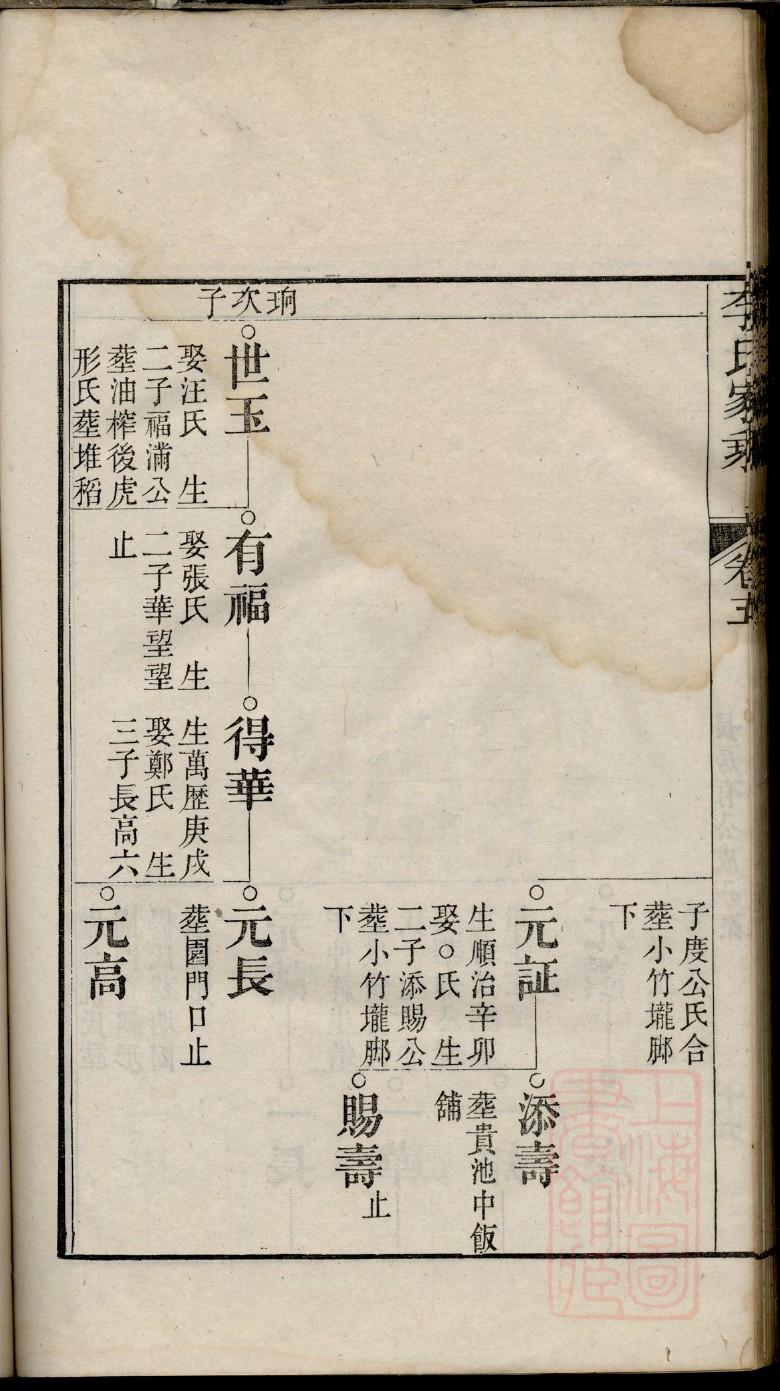 李氏家乘
卷五
子度公氏合
塟小竹壠脚
下
元証
生順治辛卯
娶○氏生
二子添賜公
塟小竹壠脚
下
添壽
塟貴池中飯
舖
賜壽止
珦次子
世玉
娶汪氏生
二子福滿公
塟油榨後虎
形氏塟堆稻
有福
娶張氏生
二子華望望
止
得華
生萬歷庚戌
娶鄭氏生
三子長高六
元長
塟園門口止
元高
上海圖書館藏